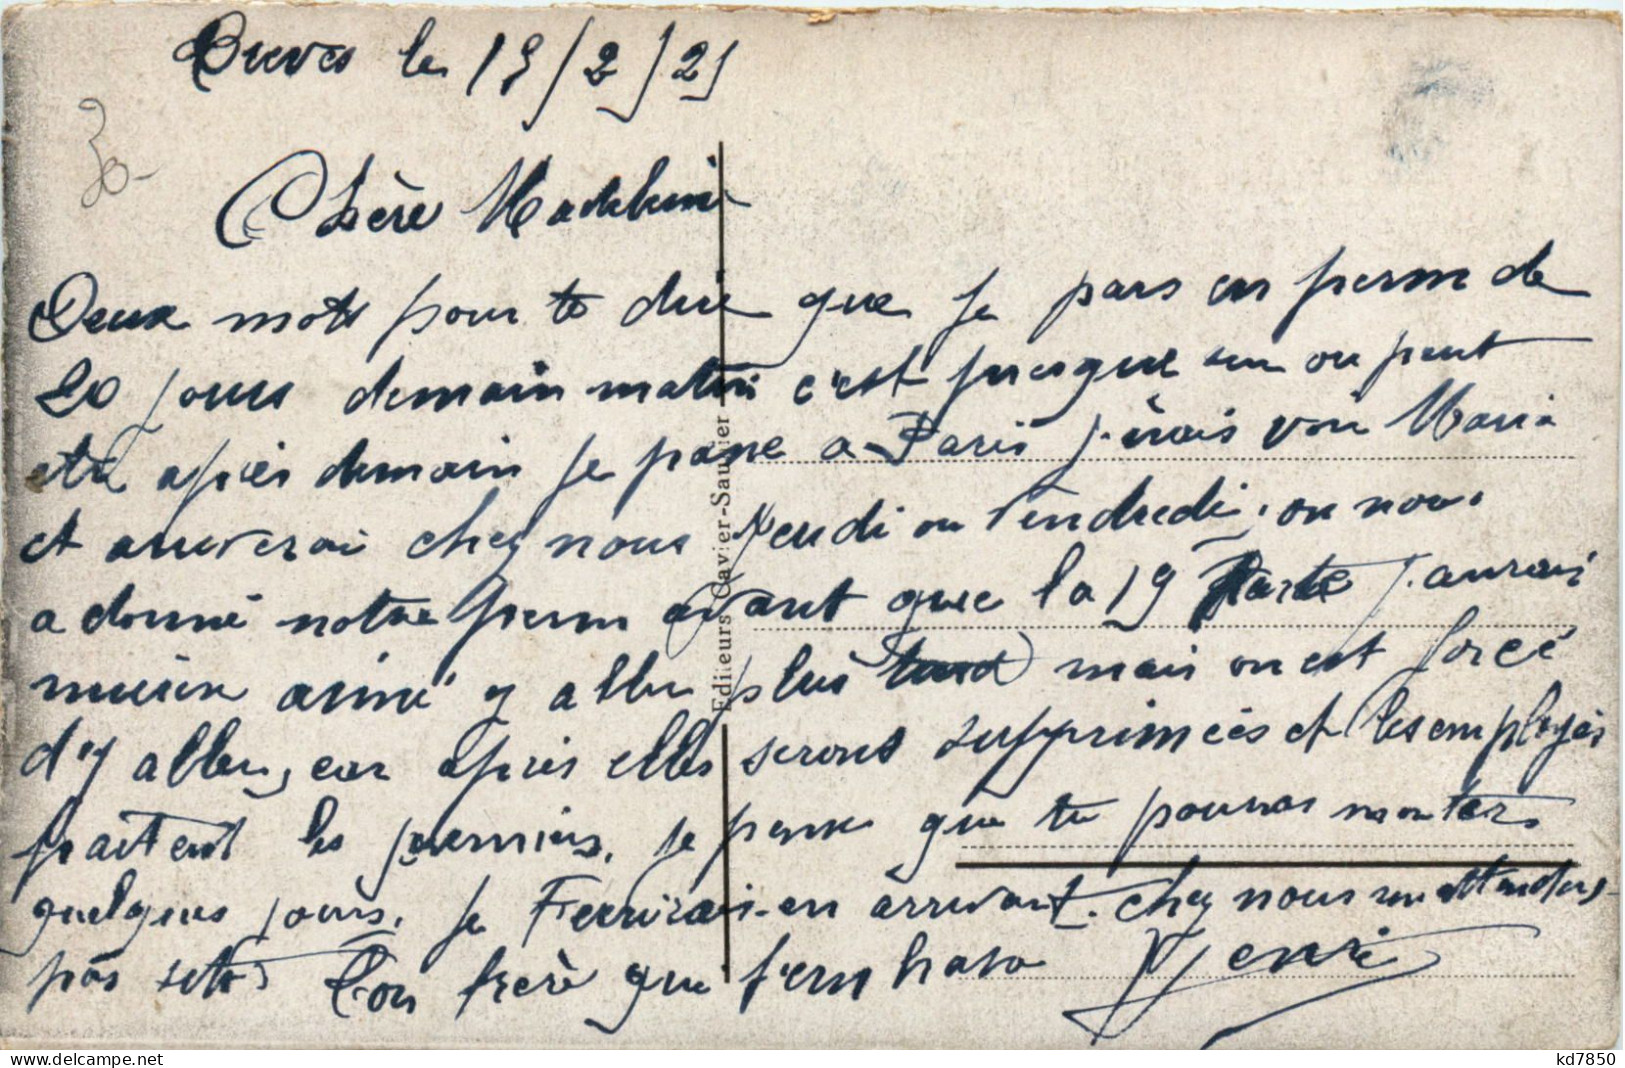 Treves le 15/2/21
30-
Chère Madeleine
Deux mots pour te dire que je pars en perm de
20 jours demain matin c'est presque sur ou peut
etre après demain je passe a Paris j'irais voir Maria
et arriverai chez nous Jeudi ou Vendredi, on nous
a donné notre perm avant que la 19 Parte j'aurais
mieux aimé y aller plus tard mais on est forcé
d'y aller, car après elles seront supprimées et les employés
partent les premiers. je pense que tu pourras monter
quelques jours. je t'ecrirai en arrivant. chez nous m'attendens
pas sitot Ton frère que t'embrasse Henri
Editeurs Cavier-Saunier
kd7850